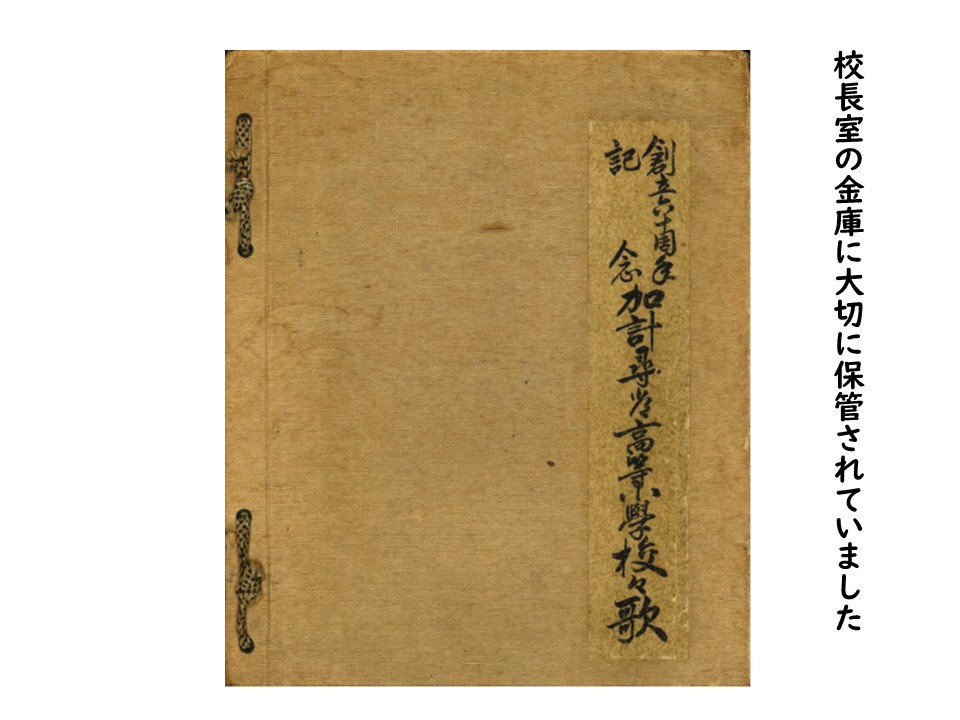 校長室の金庫に大切に保管されていました
創立六十周年
記念
加計尋常高等小學校々歌